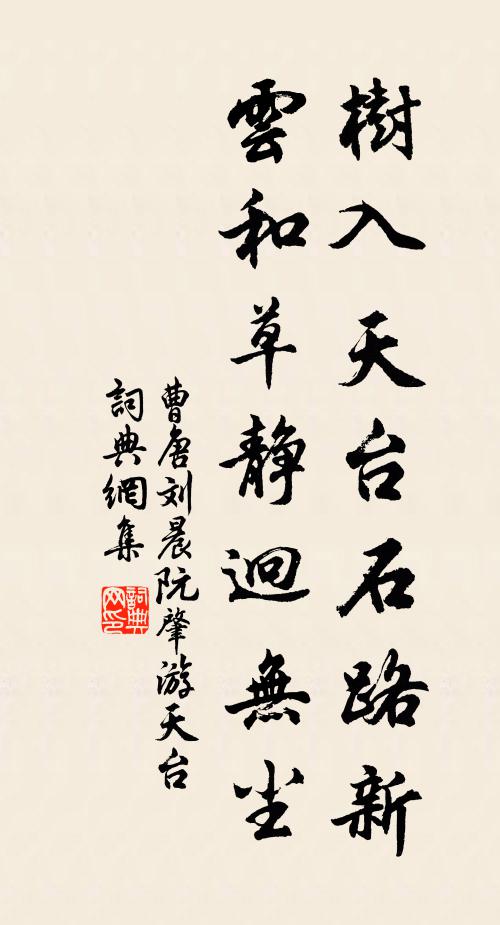 樹入天台石路新
雲和草静迥無尘
曹唐刘晨阮肇游天台
詞典網集
詞典网印